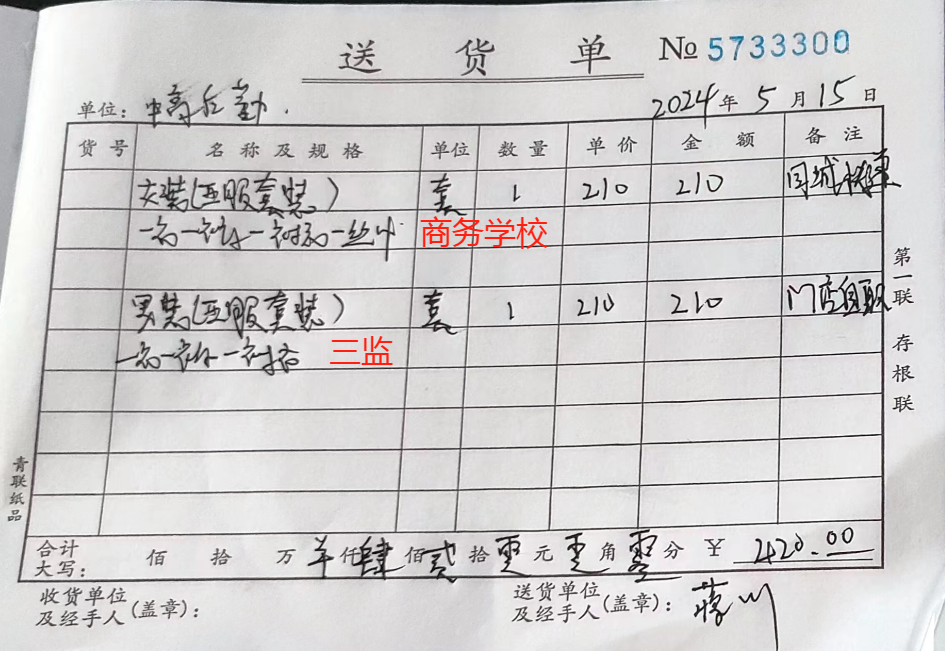 送 货 单 № 5733300
单位: 中高后勤. 2024 年 5 月 15 日
货 号 名 称 及 规 格 单位 数 量 单 价 金 额 备 注
女装(西服套装) 套 1 210 210 同城
商务学校
男装(西服套装) 套 1 210 210 门店自取
三监
第一联 存根联
青联纸品
合计大写: 佰 拾 万 仟肆佰贰拾零元零角零分 ¥ 420.00
收货单位及经手人(盖章): 送货单位及经手人(盖章):